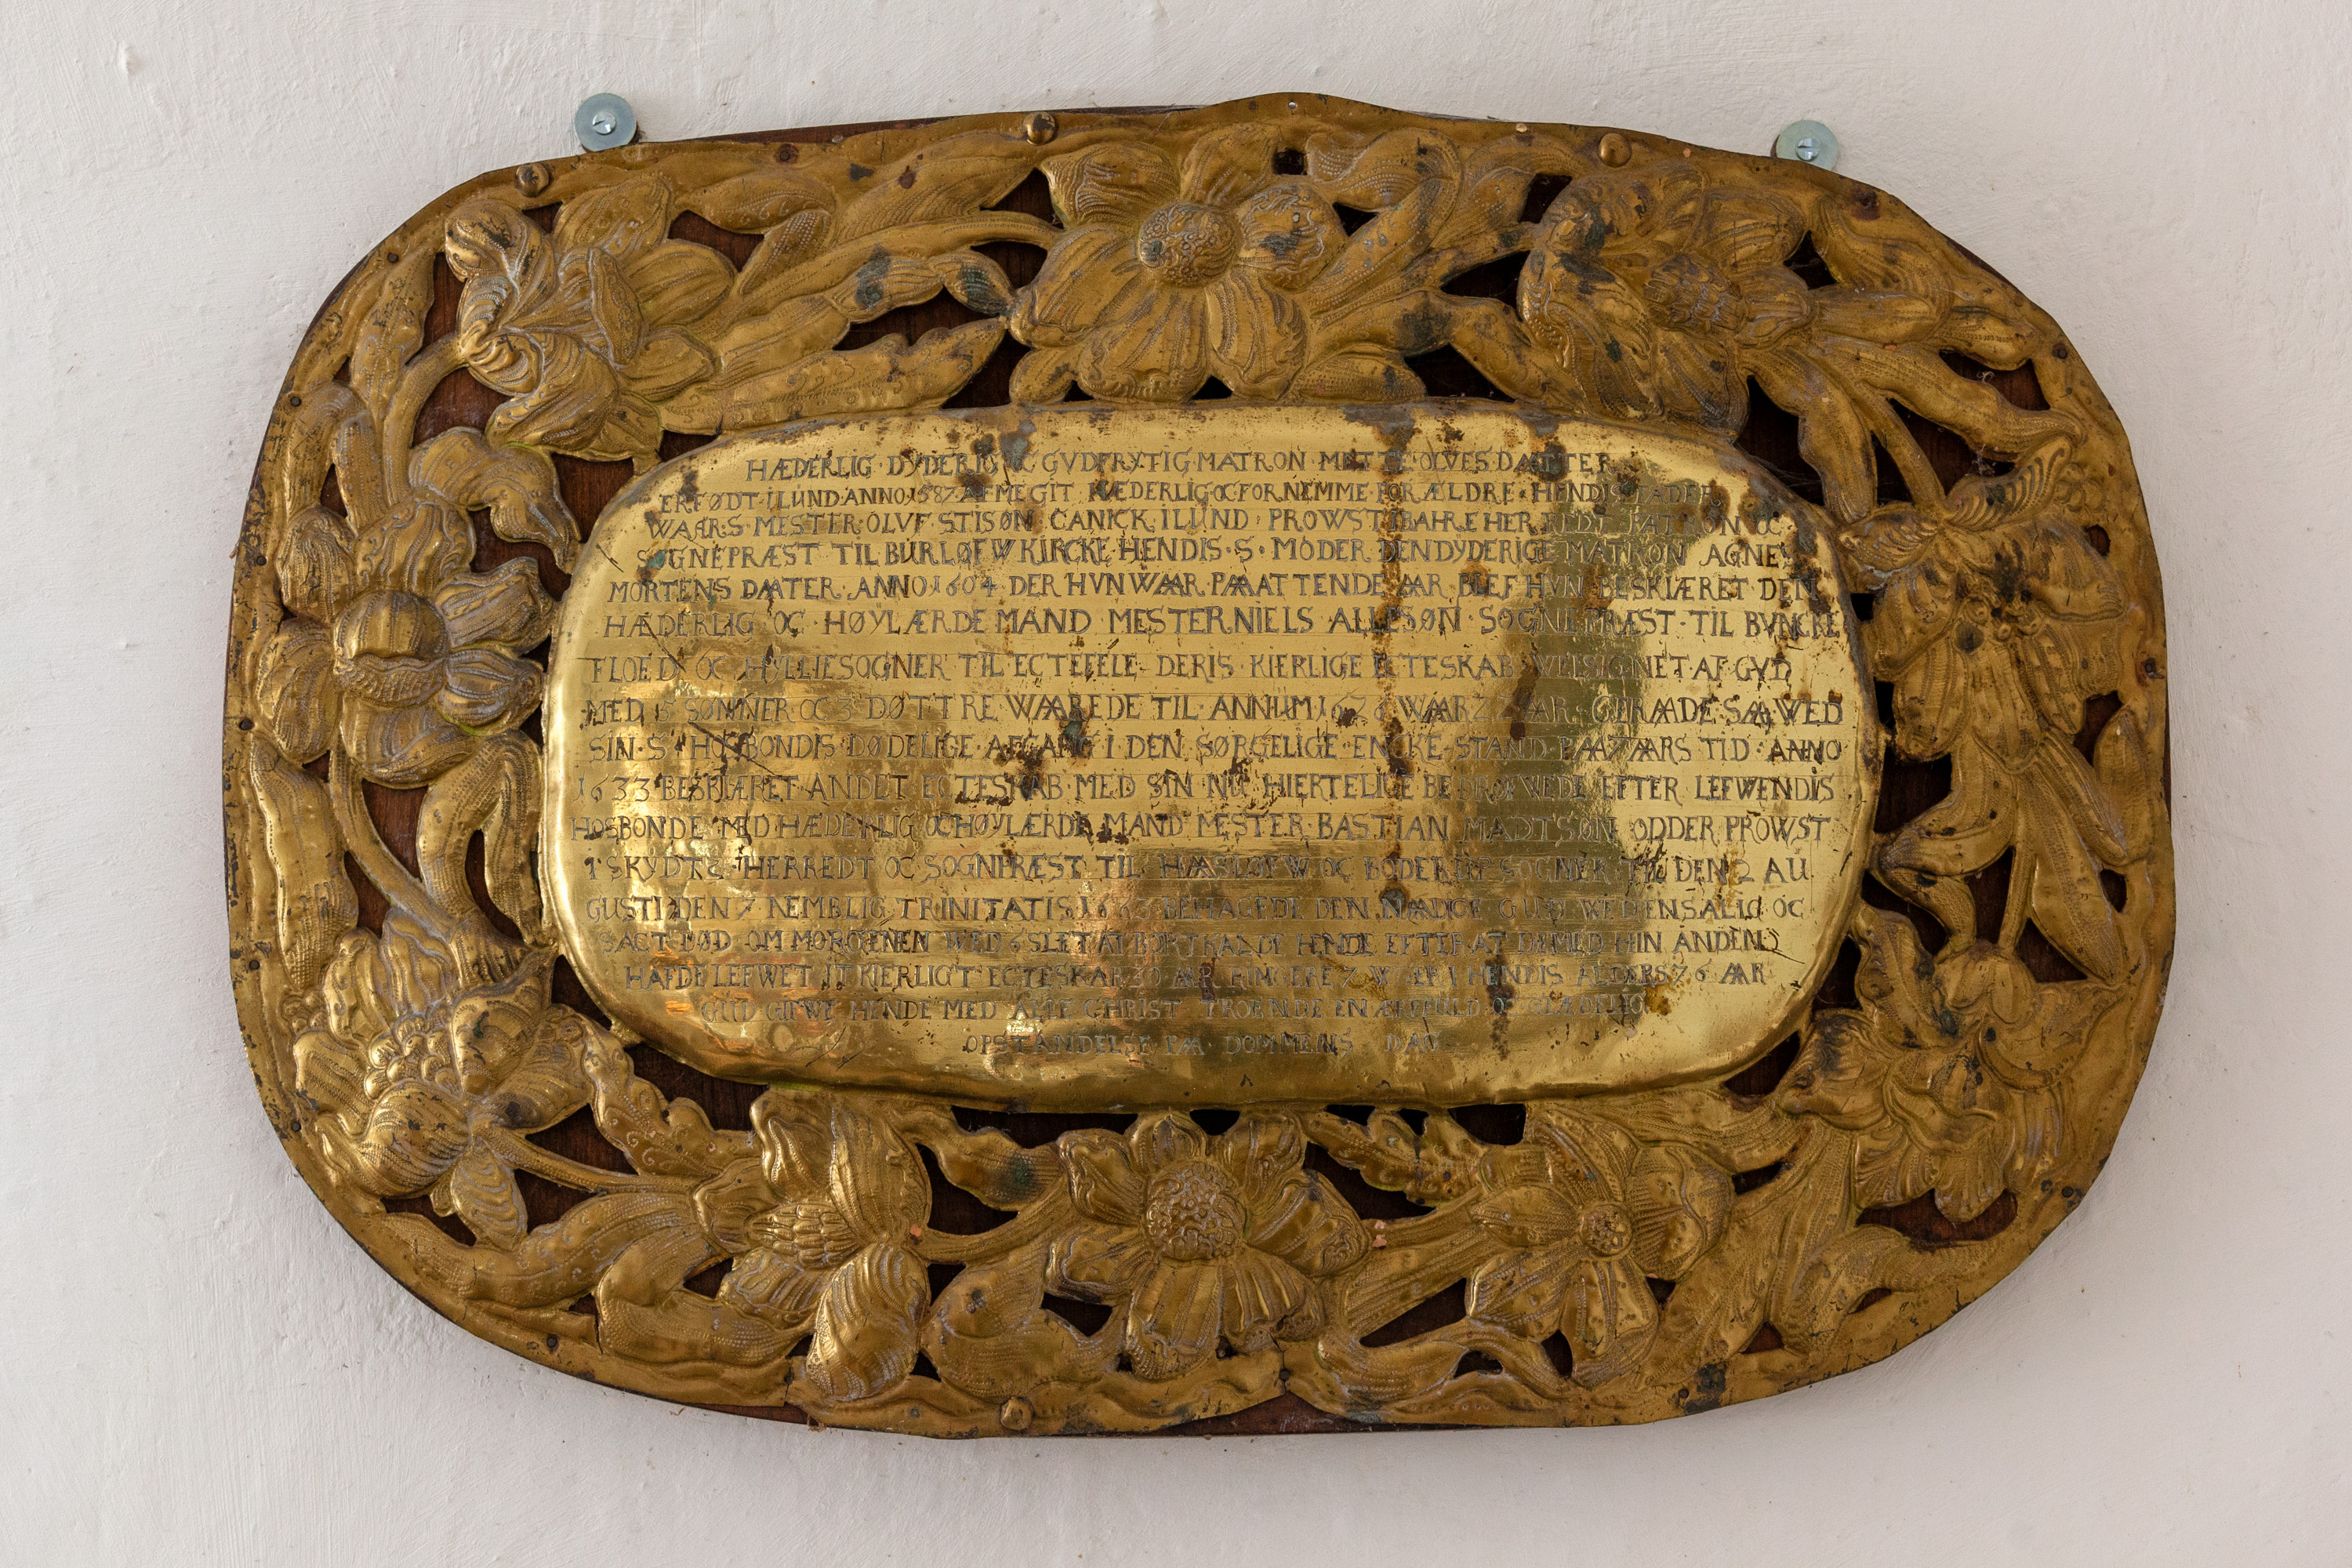 HÆDERLIG · DYDERIG OC GVDFRYTIG MATRON METTE · OLVFS DAATTER
ER FØDT · I LUND ANNO · 1587 · AF MEGIT HÆDERLIG OC FORNEMME FORÆLDRE · HENDIS FADER
WAAR · S · MESTER · OLVF STISØN CANICK I LUND · PROWST I BAHRE HERREDT PATRON OC
SOGNEPRÆST TIL BURLØFW KIRCKE HENDIS · S · MODER DEN DYDERIGE MATRON AGNE
MORTENS DAATER · ANNO 1604 DER HVN WAAR PAA ATTENDE AAR BLEF HVN BESKIÆRET DEN
HÆDERLIG OC · HØYLÆRDE MAND MESTER NIELS ALLESØN · SOGNEPRÆST · TIL BVNCKE
FLOED OC HYLLIE SOGNER TIL ECTEFELE · DERIS · KIERLIGE ECTESKAB WELSIGNET AF GVD
MED 5 SØNNER OC 3 DØTTRE WAAREDE TIL ANNUM WAAR AAR · GERAADE SAA WED
SIN · S · HOSBONDIS DØDELIGE · AFGANG I DEN SØRGELIGE · ENCKE STAND PAA AARS TID · ANNO
1633 BESKIÆRET ANDET ECTESKAB MED SIN NU HIERTELIGE BEDRØFWEDE EFTER LEFWENDIS
HOSBONDE MED HÆDERLIG OC HØYLÆRDE MAND MESTER BASTIAN MADTSØN ODDER PROWST
I SKYDTZ HERREDT OC SOGNPRÆST TIL HAASLØFW OC BODERUP SOGNER TIL DEN 2 AU
GUSTI DEN 7 NEMBLIG TRINITATIS 1663 BEHAGEDE DEN NAADIGE GUD WED EN SALIG OC
SAGT DØD OM MORGENEN WED 6 SLET AT BORTKALDE HENDE EFTER AT DE MED HIN ANDEN
HAFDE LEFWET IT KIERLIGT ECTESKAB 30 AAR RINGERE 7 I HENDIS ALDERS 76 AAR
GUD GIFWE HENDE MED ALLE CHRIST TROENDE EN ÆREFULD OC GLÆDELIG
OPSTANDELSE PAA · DOMMENS DAG